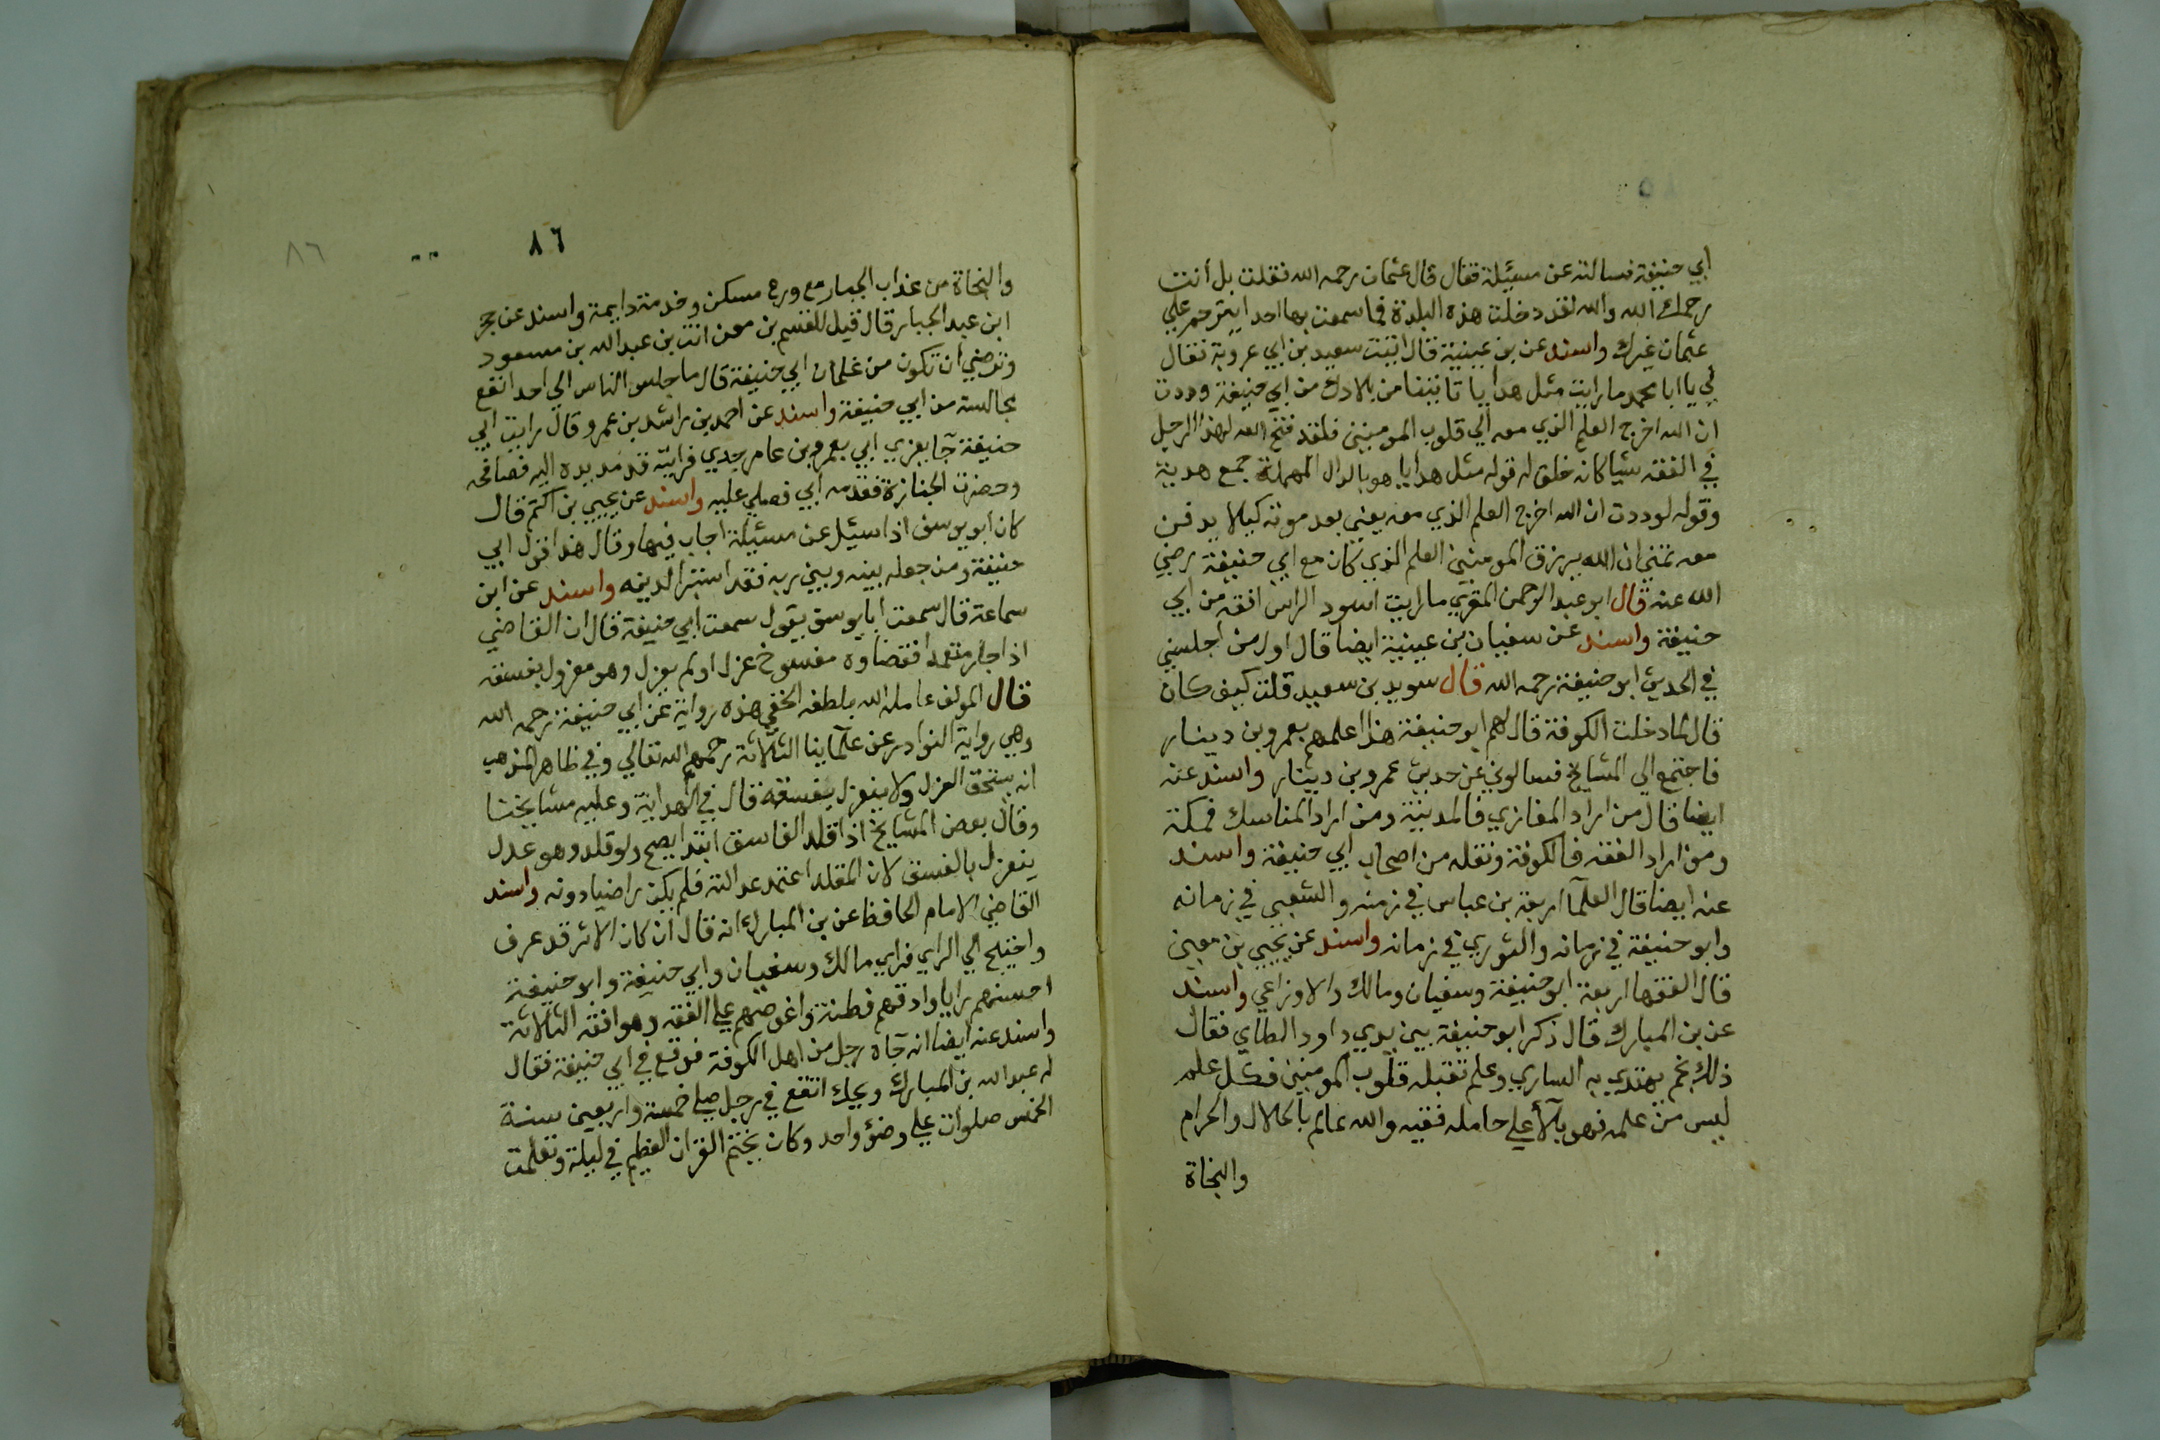 ابي حنيفة فسالته عن مسئلة فقال قال عثمان رحمه الله فقلت بل أنت
رحمك الله والله لقد دخلت هذه البلدة فما سمعت بها احدا يترحم علي
عثمان غيرك واسند عن بن عيينة قال اتيت سعيد بن ابي عروبة فقال
لي يا ابا محمد ما رايت مثل هدايا تاتينا من بلادك من ابي حنيفة وددت
ان الله اخرج العلم الذي معه الي قلوب المومنين فلقد فتح الله لهذا الرجل
في الفقه شيا كانه خلق له قوله مثل هدايا هو بالدال المهملة جمع هدية
وقوله لوددت ان الله اخرج العلم الذي معه يعني بعد موته كيلا يدفن
معه تمني ان الله يرزق المومنين العلم الذي كان مع ابي حنيفة رضي
الله عنه قال ابو عبد الرحمن المقري ما رايت اسود الراس افقه من ابي
حنيفة واسند عن سفيان بن عيينة ايضا قال اول من اجلسني
في الحديث ابو حنيفة رحمه الله قال سويد بن سعيد قلت كيف كان
قال لما دخلت الكوفة قال لهم ابو حنيفة هذا اعلمهم بعمرو بن دينار
فاجتمع الي المشايخ فسالوني عن حديث عمرو بن دينار واسند عنه
ايضا قال من اراد المغازي فالمدينة ومن اراد المناسك فمكة
ومن اراد الفقه فالكوفة ونقله من اصحاب ابي حنيفة واسند
عنه ايضا قال العلمآ اربعة بن عباس في زمنه والشعبي في زمانه
وابو حنيفة في زمانه والثوري في زمانه واسند عن يحيي بن معين
قال الفقها اربعة ابو حنيفة وسفيان ومالك والاوزاعي واسند
عن بن المبارك قال ذكر ابو حنيفة بين يدي داود الطاي فقال
ذلك نجم يهتدي به الساري وعلم تقبله قلوب المومنين فكل علم
ليس من علمه فهو بلآ علي حامله فقيه والله عالم بالحلال والحرام
والنجاة
٨٦
٨٦
والنجاة من عذاب الجبار مع ورع مسكن وخدمة دايمة واسند عن حجر
ابن عبد الجبار قال قيل للقسم بن معن انت بن عبد الله بن مسعود
وترضي ان تكون من غلمان ابي حنيفة قال ما جلس الناس الي احد انفع
مجالسة من ابي حنيفة واسند عن احمد بن راشد بن عمرو قال رايت ابي
حنيفة جآ يعزي ابي بعمرو بن عامر جدي فرايته قد مد يده اليه فصافحه
وحضرت الجنازة فقدمه ابي فصلي عليه واسند عن يحيي بن اكثم قال
كان ابو يوسف اذا سئل عن مسئلة اجاب فيها وقال هذا قول ابي
حنيفة ومن جعله بينه وبين ربه فقد استبرا لدينه واسند عن ابن
سماعة قال سمعت ابا يوسف يقول سمعت ابي حنيفة قال ان القاضي
اذا جار متعمدا فقضاوه مفسوخ عزل اولم يعزل وهو معزول بفسقه
قال المولف عامله الله بلطفه الخفي هذه رواية عن ابي حنيفة رحمه الله
وهي رواية النوادر عن علمآينا الثلاثة رحمهم الله تعالي وفي ظاهر المذهب
انه يستحق العزل ولا ينعزل بفسقه قال في الهداية وعليه مشايخنا
وقال بعض المشايخ اذا قلد الفاسق ابتدا يصح ولو قلد وهو عدل
ينعزل بالفسق لان المقلد اعتمد عدالته فلم يكن راضيا دونه واسند
القاضي الامام الحافظ عن بن المبارك انه قال ان كان الاثر قد عرف
واحتيج الي الراي فراي مالك وسفيان وابي حنيفة وابو حنيفة
احسنهم رايا وادقهم فطنة واغوصهم علي الفقه وهو افقه الثلاثة
واسند عنه ايضا انه جآه رجل من اهل الكوفة فوقع في ابي حنيفة فقال
له عبد الله بن المبارك ويحك اتقع في رجل صلي خمسة واربعين سنة
الخمس صلوات علي وضوٓ واحد وكان يختم القران العظيم في ليلة وتعلمت